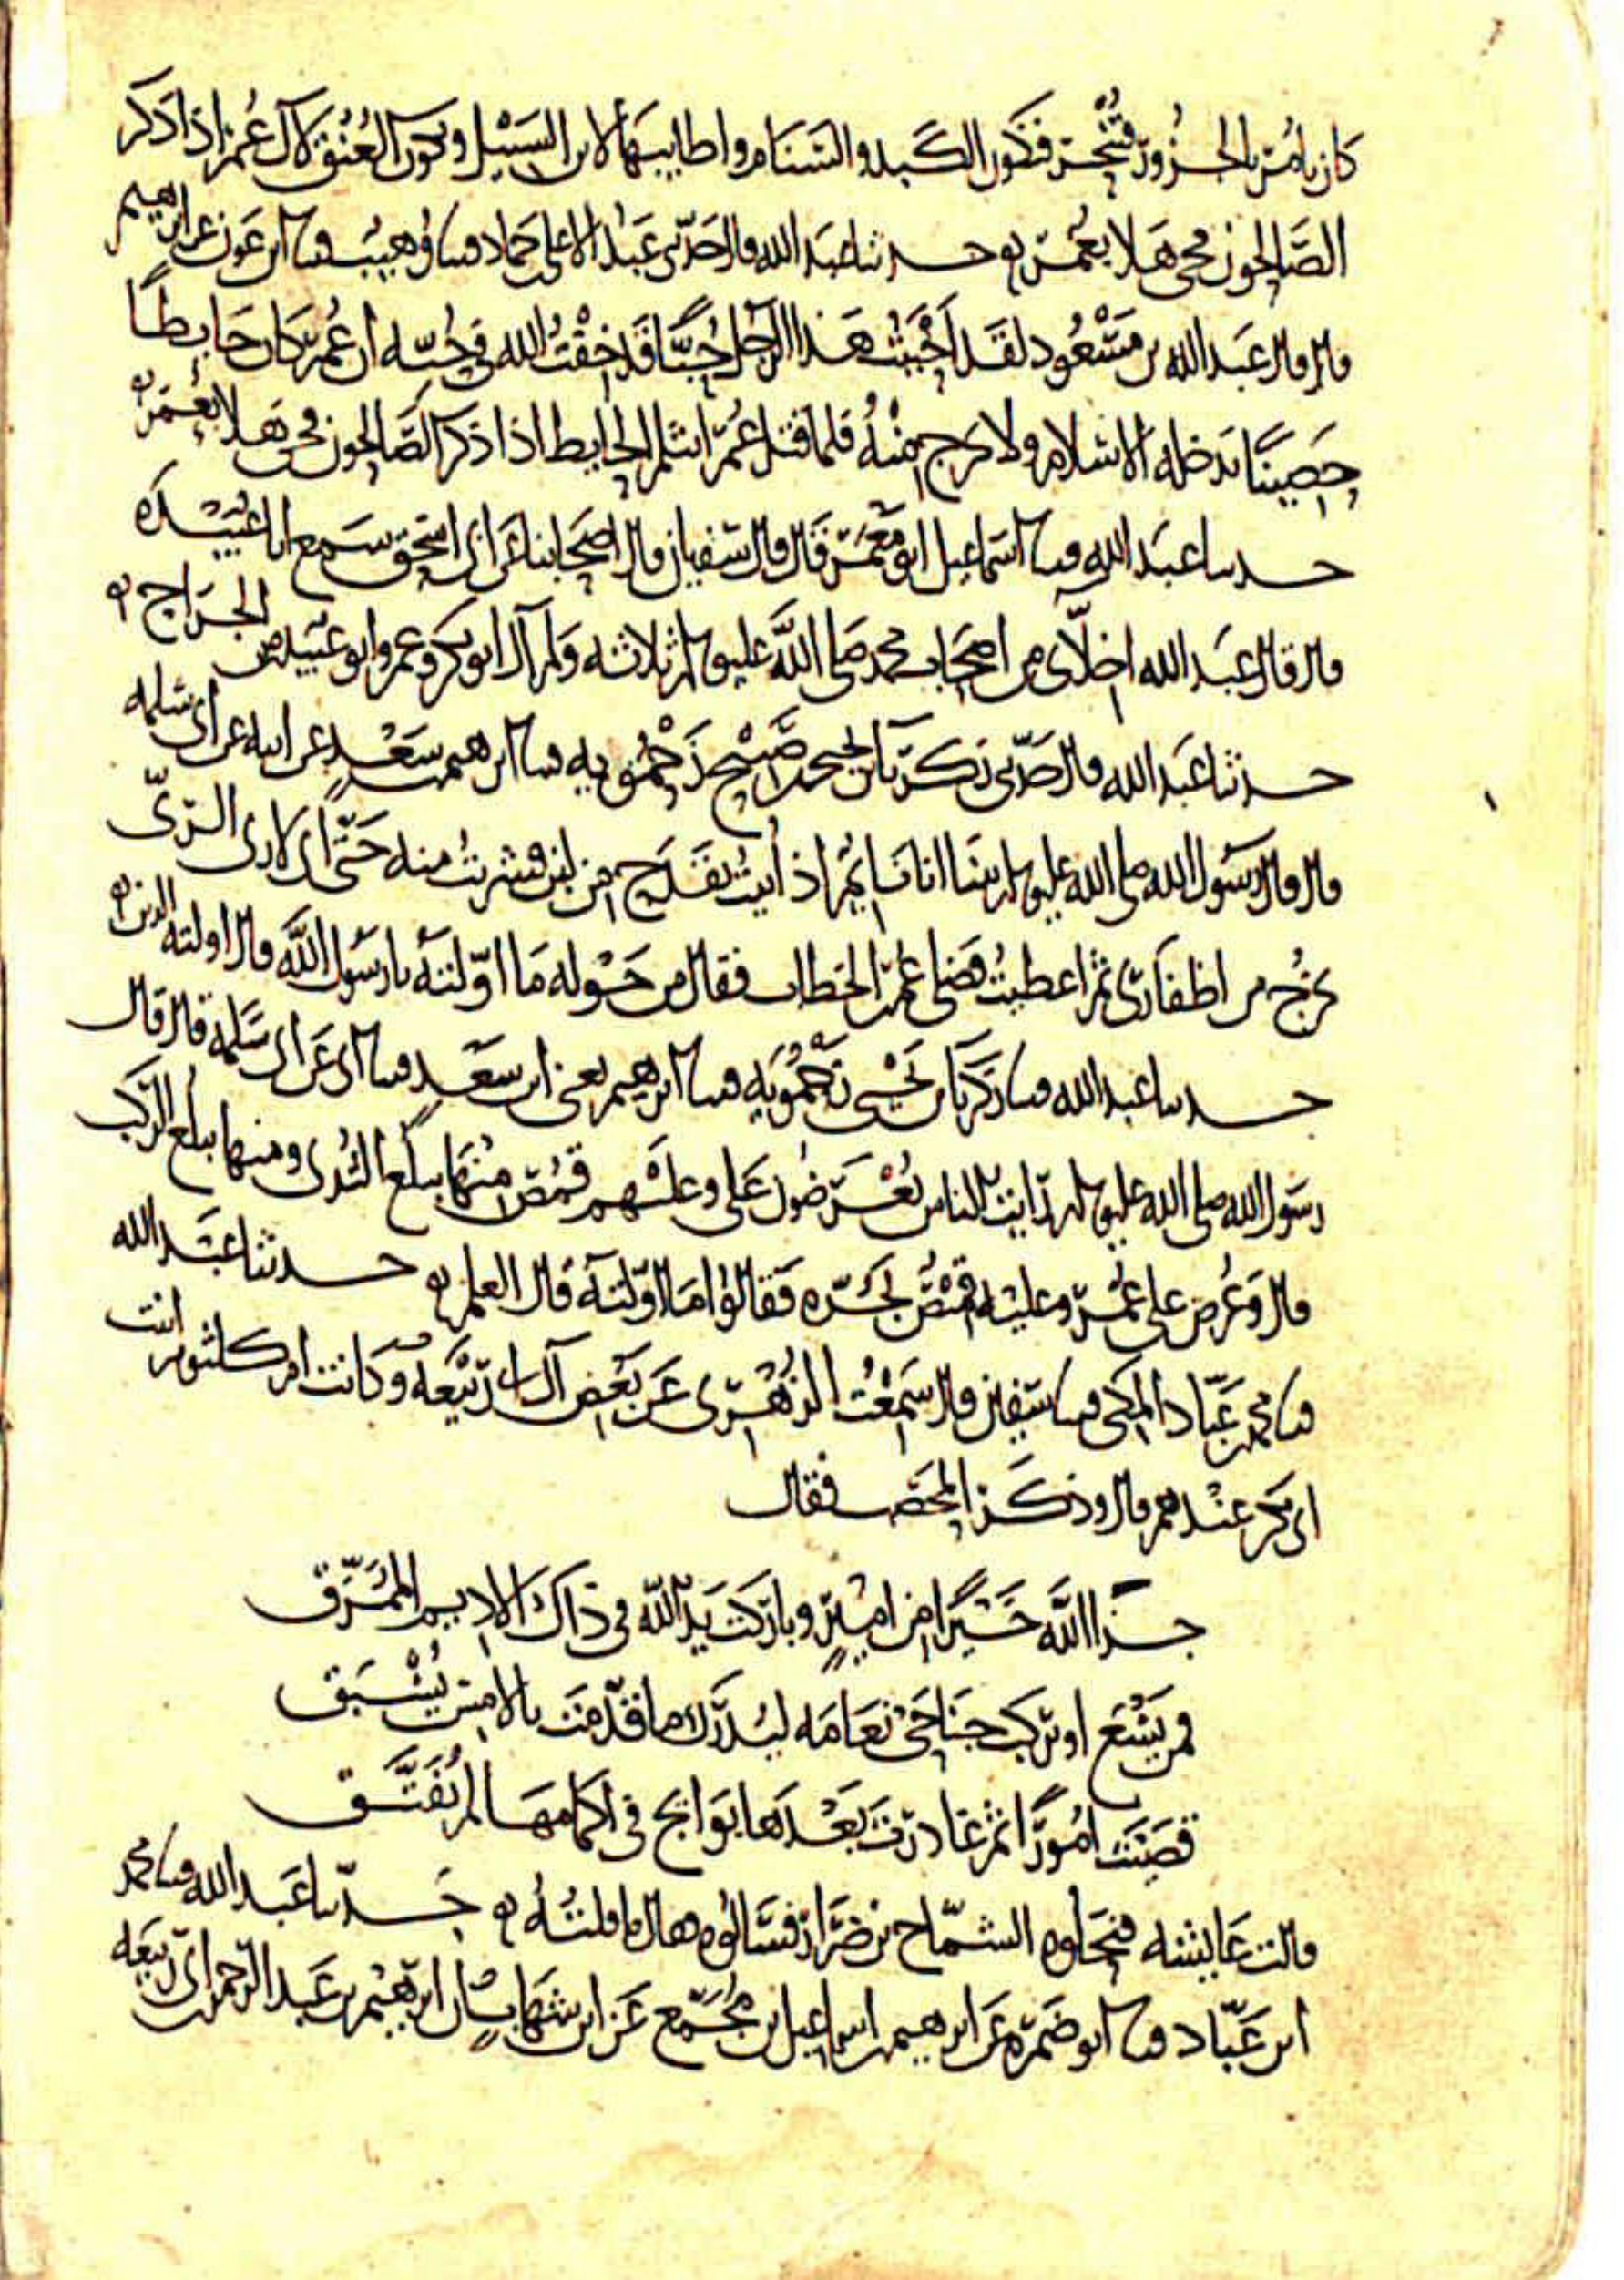 كان يامر بالجزور فتنحر فتكون الكبد والسنام واطايبها لابن السبيل ويكون العنق لال عمر اذا ذكر
الصالحون فحي هلا بعمر ه حدثنا عبد الله قال حدثني عبد الاعلى حماد نا وهيب نا ابن عون عن ابرهيم
قال قال عبد الله بن مسعود لقد احببت هذا الرجل حبا قد خفت الله في حبه ان عمر كان حايطا
حصينا يدخله الاسلام ولا يخرج منه فلما قتل عمر انثلم الحايط اذا ذكر الصالحون فحي هلا بعمر ه
حدثنا عبد الله نا اسماعيل ابو معمر قال قال سفيان قال اصحابنا عن ابي اسحق سمع ابا عبيده
قال قال عبد الله اخلاى من اصحاب محمد صلى الله عليه وسلم ثلاثه ابو بكر وعمر وابو عبيده بن الجراح ه
حدثنا عبد الله قال حدثني زكريا بن يحيى صبيح زحمويه نا ابرهيم سعد عن ابيه عن ابي سلمه
قال قال رسول الله صلى الله عليه وسلم بينا انا نايم اذ اتيت بقدح من لبن فشربت منه حتى اني لارى الري
يخرج من اظفاري ثم اعطيت فضلي عمر الخطاب فقال من حوله ما اولته يا رسول الله قال اولته الدين ه
حدثنا عبد الله نا زكريا بن يحيى زحمويه نا ابرهيم يعني ابن سعد نا ابي عن ابي سلمة قال قال
رسول الله صلى الله عليه وسلم رايت الناس يعرضون علي وعليهم قمص منها يبلغ الثدي ومنها يبلغ الركب
قال وعرض علي عمر وعليه قميص يجره فقالوا ما اولته قال العلم ه حدثنا عبد الله
نا محمد بن عباد المكي نا سفين قال سمعت الزهري عن بعض آل ابي ربيعه وكانت ام كلثوم ابنت
ابي بكر عندهم قال وذكر المحصب فقال
جزا الله خيرا من امير وباركت يد الله في ذاك الاديم الممزق
فمن يسع او يركب جناحي نعامه ليدرك ما قدمت بالامس يسبق
قضيت امورا ثم غادرت بعدها بوايج في اكمامها لم تفتق
قالت عايشه فنحلوه الشماخ بن ضرار فسالوه فقال ما قلته ه حدثنا عبد الله نا محمد
ابن عباد نا ابو ضمره عن ابرهيم اسماعيل بن مجمع عن ابن شهاب ان ابرهيم بن عبد الرحمن ابي ربيعه